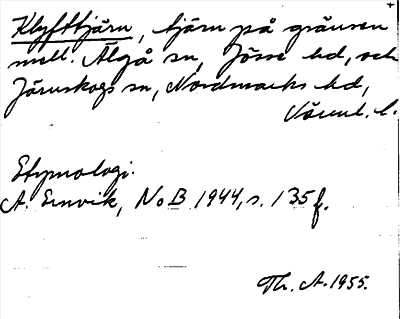 Klyfttjärn, tjärn på gränsen
mell. Älgå sn, Jösse hd, och
Järnskogs sn, Nordmarks hd,
Värml. l.
Etymologi:
A. Ernvik, NoB 1944, s. 135 f.
Th. A. 1955.